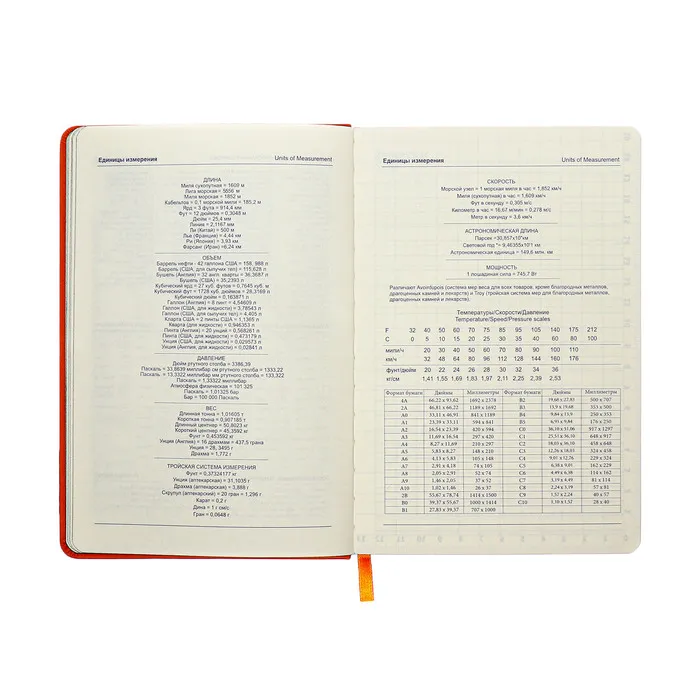 Единицы измерения Units of Measurement
ДЛИНА
Миля сухопутная = 1609 м
Лига морская = 5556 м
Миля морская = 1852 м
Кабельтов = 0,1 морской мили = 185,2 м
Ярд = 3 фута = 914,4 мм
Фут = 12 дюймов = 0,3048 м
Дюйм = 25,4 мм
Румынск = 2,1167 мм
Ли (Китай) = 500 м
Лье (Франция) = 4,44 км
Ри (Япония) = 3,93 км
Фарсанг (Иран) = 6,24 км
ОБЪЕМ
Баррель нефти - 42 галлона США = 158, 988 л
Баррель (США, для сыпучих тел) = 115,628 л
Бушель (Англия) = 32 англ. кварты = 36,3687 л
Бушель (США) = 35,2393 л
Кубический ярд = 27 куб. футов = 0,7645 куб. м
Кубический фут = 1728 куб. дюймов = 28,3169 л
Кубический дюйм = 0,163871 л
Галлон (Англия) = 8 пинт = 4,54609 л
Галлон (США, для жидкости) = 3,78543 л
Галлон (США, для сыпучих тел) = 4,405 л
Кварта (США) = 2 пинты США = 1,1365 л
Кварта (для жидкости) = 0,946353 л
Пинта (Англия) = 20 унций = 0,568261 л
Пинта (США, для жидкости) = 0,473179 л
Унция (США, для жидкости) = 0,029573 л
Унция (Англия, для жидкости) = 0,02841 л
ДАВЛЕНИЕ
Дюйм ртутного столба = 3386,39
Паскаль = 33,8639 миллибар см ртутного столба = 1333,22
Паскаль = 13,3322 миллибар мм ртутного столба = 133,322
Паскаль = 1,33322 миллибар
Атмосфера физическая = 101 325
Паскаль = 1,01325 бар
Бар = 100 000 Паскаль
ВЕС
Длинная тонна = 1,01605 т
Короткая тонна = 0,907185 т
Длинный центнер = 50,8023 кг
Короткий центнер = 45,3592 кг
Фунт = 0,453592 кг
Унция (Англия) = 16 драхмам = 437,5 грана
Унция = 28, 3495 г
Драхма = 1,772 г
ТРОЙСКАЯ СИСТЕМА ИЗМЕРЕНИЯ
Фунт = 0,37324177 кг
Унция (аптекарская) = 31,1035 г
Драхма (аптекарская) = 3,888 г
Скрупул (аптекарский) = 20 гран = 1,296 г
Карат = 0,2 г
Дина = 1 г см/с
Гран = 0,0648 г
Единицы измерения Units of Measurement
СКОРОСТЬ
Морской узел = 1 морская миля в час = 1,852 км/ч
Миля (сухопутная) в час = 1,609 км/ч
Фут в секунду = 0,305 м/с
Километр в час = 16,67 м/мин = 0,278 м/с)
Метр в секунду = 3,6 км/ч
АСТРОНОМИЧЕСКАЯ ДЛИНА
Парсек =30,857х10¹²км
Астрономическая единица = 149,6 млн. км
МОЩНОСТЬ
1 лошадиная сила = 745,7 Вт
Различают Avoirdupois (система мер веса для всех товаров, кроме благородных металлов,
драгоценных камней и лекарств) и Troy (тройская система мер для благородных металлов,
драгоценных камней и лекарств).
Температуры/Скорости/Давление
Temperature/Speed/Pressure scales
F 32 40 50 60 70 75 85 95 105 140 175 212
C 0 5 10 15 20 25 30 35 40 60 80 100
мили/ч 20 30 40 50 60 70 80 90 100 110
км/ч 32 48 64 80 96 112 128 144 160 176
фунт/дюйм 20 22 24 26 28 30 32 34 36
кг/см 1,41 1,55 1,69 1,83 1,97 2,11 2,25 2,39 2,53
Формат бумаги Дюймы Миллиметры Формат бумаги Дюймы Миллиметры
4A 66,22 x 93,62 1682 x 2378 B2 19,68 x 27,83 500 x 707
2A 46,81 x 66,22 1189 x 1682 B3 13,9 x 19,68 353 x 500
A0 33,11 x 46,81 841 x 1189 B4 9,84 x 13,9 250 x 353
A1 23,39 x 33,11 594 x 841 B5 6,93 x 9,84 176 x 250
A2 16,54 x 23,39 420 x 594 C0 36,10 x 51,06 917 x 1297
A3 11,69 x 16,54 297 x 420 C1 25,51 x 36,10 648 x 917
A4 8,27 x 11,69 210 x 297 C2 18,03 x 25,51 458 x 648
A5 5,83 x 8,27 148 x 210 C3 12,76 x 18,03 324 x 458
A6 4,13 x 5,83 105 x 148 C4 9,01 x 12,76 229 x 324
A7 2,91 x 4,18 74 x 105 C5 6,38 x 9,01 162 x 229
A8 2,05 x 2,91 52 x 74 C6 4,49 x 6,38 114 x 162
A9 1,46 x 2,05 37 x 52 C7 3,19 x 4,49 81 x 114
A10 1,02 x 1,46 26 x 37 C8 2,24 x 3,19 57 x 81
2B 55,67 x 78,74 1414 x 1500 C9 1,57 x 2,24 40 x 57
B0 39,37 x 55,67 1000 x 1414 C10 1,10 x 1,57 28 x 40
B1 27,83 x 39,37 707 x 1000